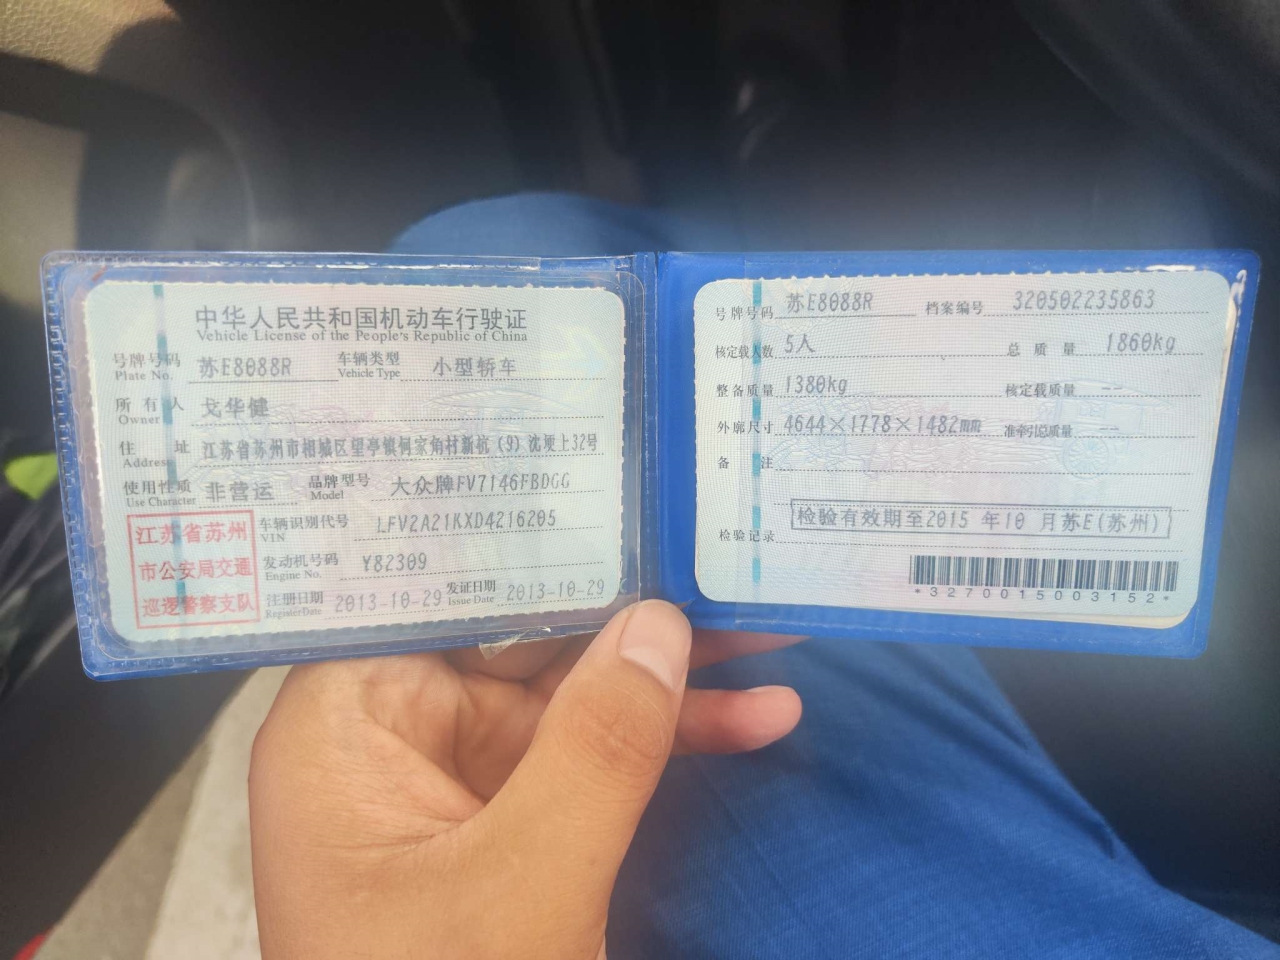 中华人民共和国机动车行驶证
Vehicle License of the People's Republic of China
号牌号码 苏E8088R 车辆类型 小型轿车
Plate No. Vehicle Type
所有人 戈华健
Owner
住址 江苏省苏州市相城区望亭镇何家角村新杭(9)沈埂上32号
Address
使用性质 非营运 品牌型号 大众牌FV7146FBDGG
Use Character Model
江苏省苏州
市公安局交通
巡逻警察支队
车辆识别代号 LFV2A21KXD4216205
VIN
发动机号码 Y82309
Engine No.
注册日期 2013-10-29 发证日期 2013-10-29
Register Date Issue Date
号牌号码 苏E8088R 档案编号 320502235863
核定载人数 5人 总质量 1860kg
整备质量 1380kg 核定载质量 --
外廓尺寸 4644×1778×1482mm 准牵引总质量 --
备注
检验记录 检验有效期至2015年10月苏E(苏州)
*3270015003152*